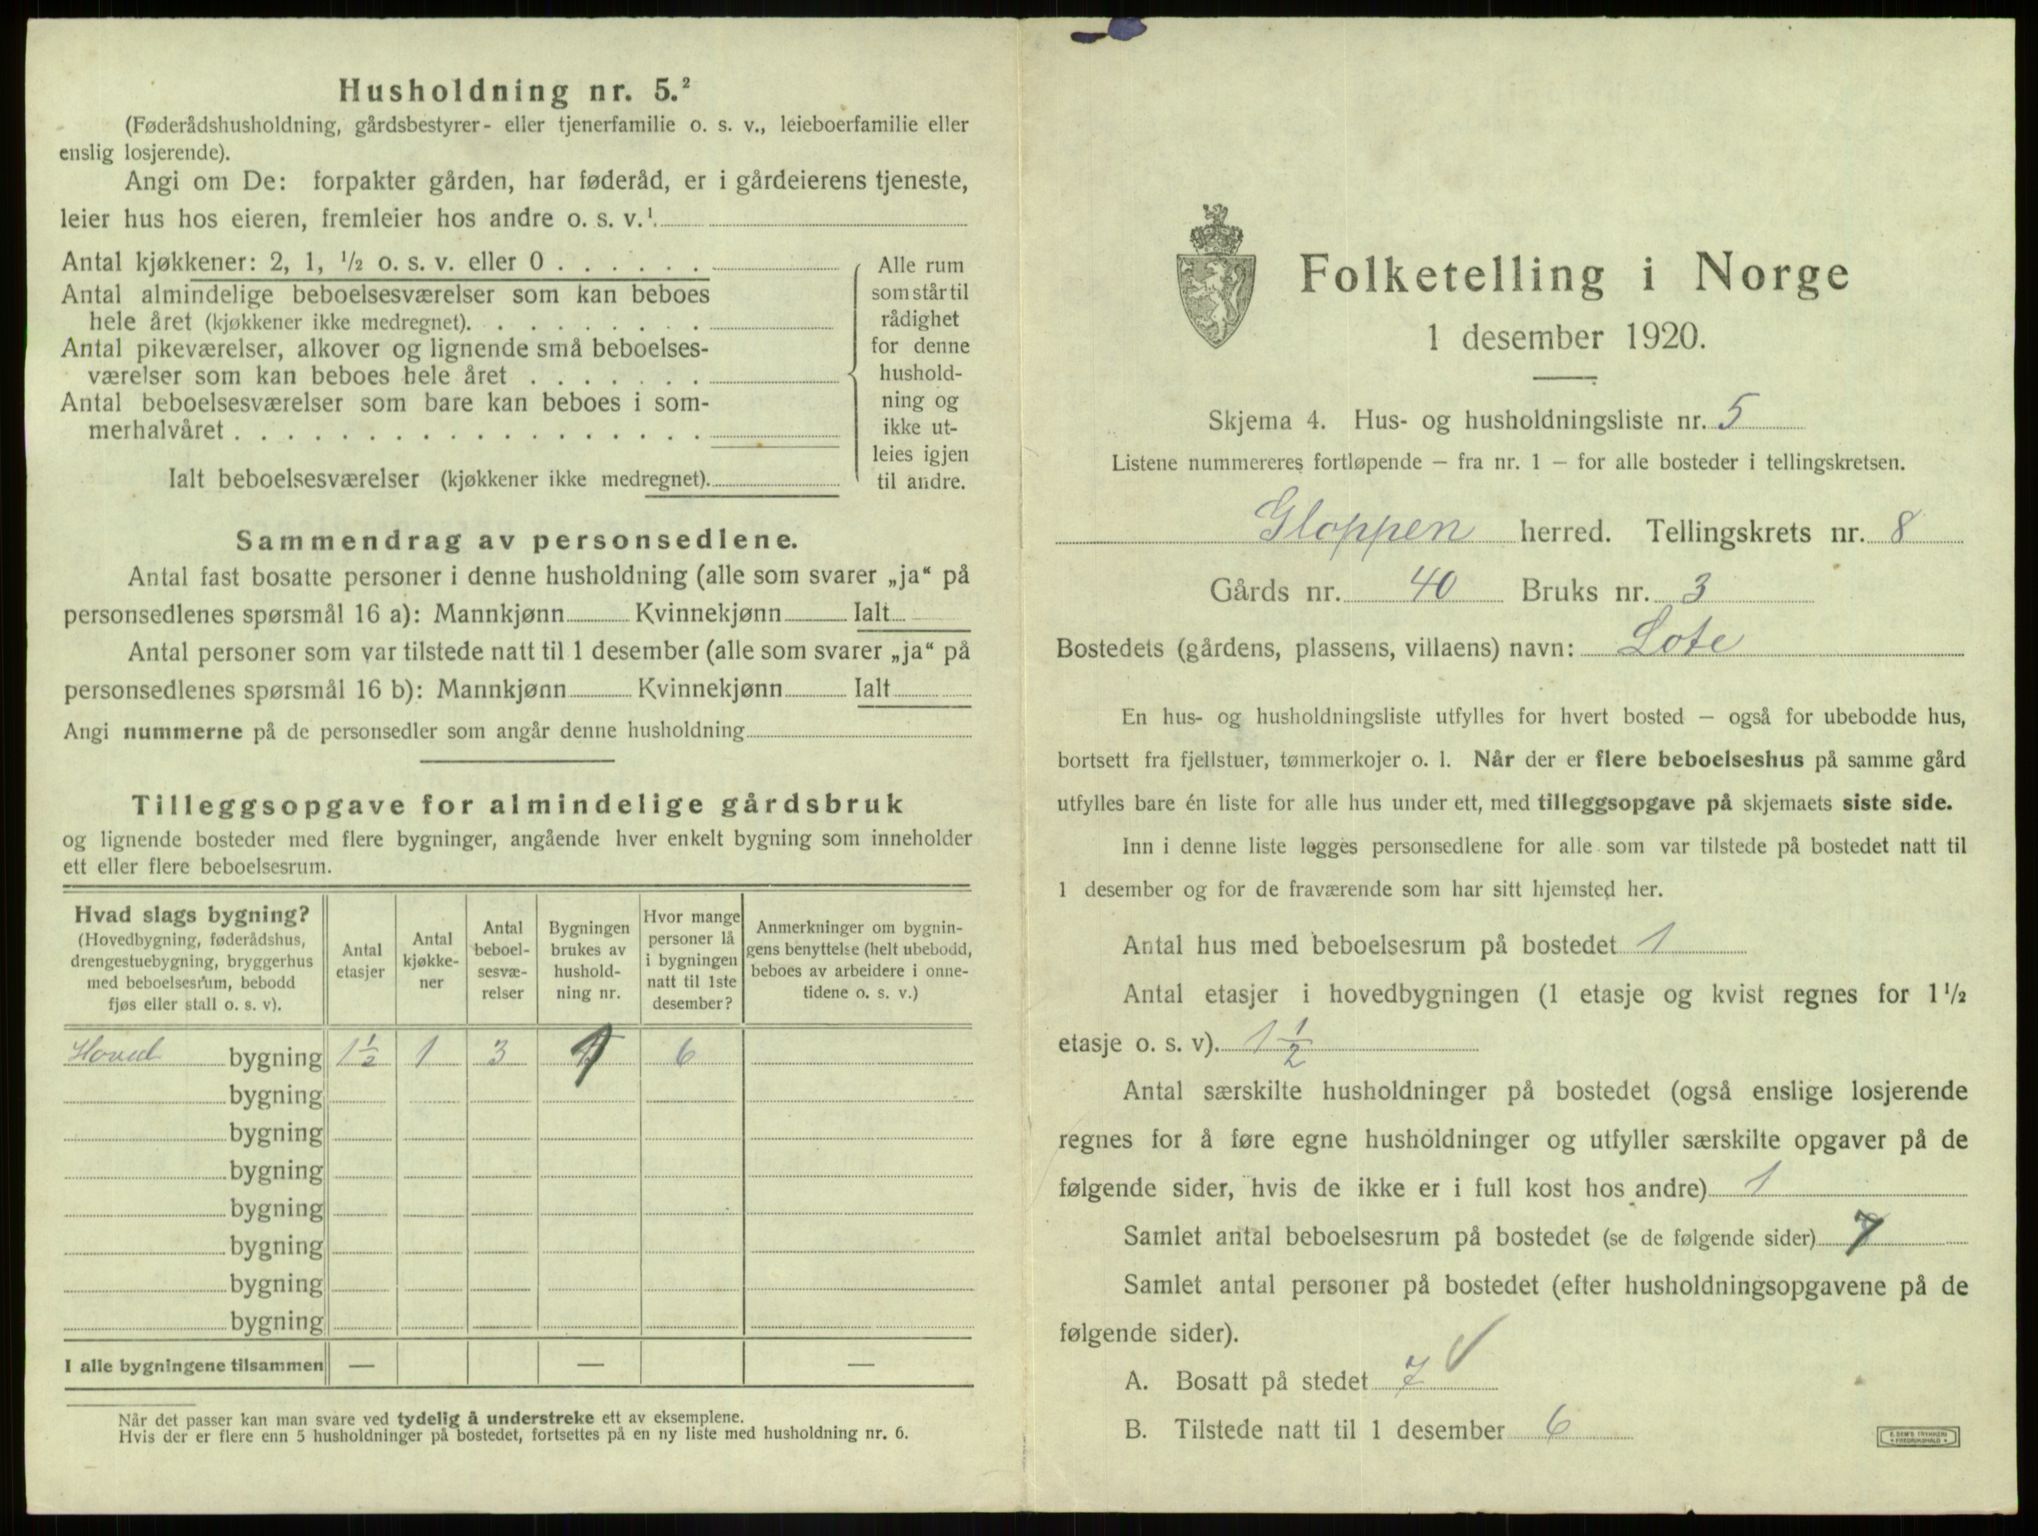 Husholdning nr. 5.²
(Føderådshusholdning, gårdsbestyrer- eller tjenerfamilie o. s. v., leieboerfamilie eller
enslig losjerende).
Angi om De: forpakter gården, har føderåd, er i gårdeierens tjeneste,
leier hus hos eieren, fremleier hos andre o. s. v.¹
Antal kjøkkener: 2, 1, ½ o. s. v. eller 0 . . . . . .
Antal almindelige beboelsesværelser som kan beboes
hele året (kjøkkener ikke medregnet). . . . . . . . .
Antal pikeværelser, alkover og lignende små beboelses-
værelser som kan beboes hele året . . . . . . .
Antal beboelsesværelser som bare kan beboes i som-
merhalvåret . . . . . . . . . . . . . . . . . .
Ialt beboelsesværelser (kjøkkener ikke medregnet).
Alle rum
som står til
rådighet
for denne
hushold-
ning og
ikke ut-
leies igjen
til andre.
Sammendrag av personsedlene.
Antal fast bosatte personer i denne husholdning (alle som svarer „ja“ på
personsedlenes spørsmål 16 a): Mannkjønn Kvinnekjønn Ialt
Antal personer som var tilstede natt til 1 desember (alle som svarer „ja“ på
personsedlenes spørsmål 16 b): Mannkjønn Kvinnekjønn Ialt
Angi nummerne på de personsedler som angår denne husholdning
Tilleggsopgave for almindelige gårdsbruk
og lignende bosteder med flere bygninger, angående hver enkelt bygning som inneholder
ett eller flere beboelsesrum.
Hvad slags bygning?
(Hovedbygning, føderådshus,
drengestuebygning, bryggerhus
med beboelsesrum, bebodd
fjøs eller stall o. s. v).
Antal
etasjer
Antal
kjøkke-
ner
Antal
beboel-
sesvæ-
relser
Bygningen
brukes av
hushold-
ning nr.
Hvor mange
personer lå
i bygningen
natt til 1ste
desember?
Anmerkninger om bygnin-
gens benyttelse (helt ubebodd,
beboes av arbeidere i onne-
tidene o. s. v.)
Hoved bygning 1½ 1 3 1 6
bygning
bygning
bygning
bygning
bygning
bygning
bygning
I alle bygningene tilsammen — — —
Når det passer kan man svare ved tydelig å understreke ett av eksemplene.
Hvis der er flere enn 5 husholdninger på bostedet, fortsettes på en ny liste med husholdning nr. 6.
Folketelling i Norge
1 desember 1920.
Skjema 4. Hus- og husholdningsliste nr. 5
Listene nummereres fortløpende – fra nr. 1 – for alle bosteder i tellingskretsen.
Gloppen herred. Tellingskrets nr. 8
Gårds nr. 40 Bruks nr. 3
Bostedets (gårdens, plassens, villaens) navn: Lote
En hus- og husholdningsliste utfylles for hvert bosted – også for ubebodde hus,
bortsett fra fjellstuer, tømmerkojer o. l. Når der er flere beboelseshus på samme gård
utfylles bare én liste for alle hus under ett, med tilleggsopgave på skjemaets siste side.
Inn i denne liste legges personsedlene for alle som var tilstede på bostedet natt til
1 desember og for de fraværende som har sitt hjemsted her.
Antal hus med beboelsesrum på bostedet 1
Antal etasjer i hovedbygningen (1 etasje og kvist regnes for 1½
etasje o. s. v). 1½
Antal særskilte husholdninger på bostedet (også enslige losjerende
regnes for å føre egne husholdninger og utfyller særskilte opgaver på de
følgende sider, hvis de ikke er i full kost hos andre) 1
Samlet antal beboelsesrum på bostedet (se de følgende sider) 7
Samlet antal personer på bostedet (efter husholdningsopgavene på de
følgende sider).
A. Bosatt på stedet 7
B. Tilstede natt til 1 desember 6
E. SEM'S TRYKKERI
FREDRIKSHALD